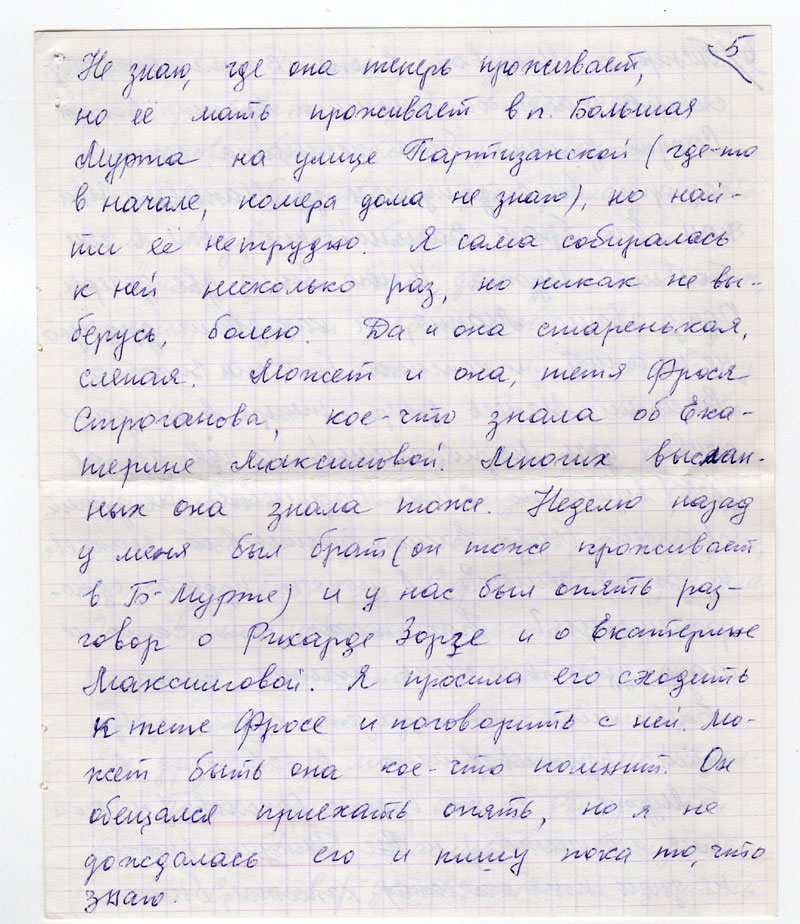 5
Не знаю, где она теперь проживает,
но её мать проживает в п. Большая
Мурта на улице Партизанской (где-то
в начале, номера дома не знаю), но най-
ти ее нетрудно. Я сама собиралась
к ней несколько раз, но никак не вы-
берусь, болею. Да и она старенькая,
слепая. Может и она, тетя Фрося
Строганова, кое-что знала об Ека-
терине Максимовой. Многих выслан-
ных она знала тоже. Неделю назад
у меня был брат (он тоже проживает
в Б-Мурте) и у нас был опять раз-
говор о Рихарде Зорге и о Екатерине
Максимовой. Я просила его сходить
к тете Фросе и поговорить с ней. Мо-
жет быть она кое-что помнит. Он
обещался приехать опять, но я не
дождалась его и пишу пока то, что
знаю.